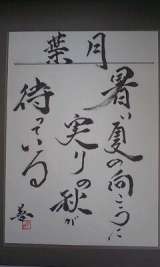 葉月
暑い夏の向こうに
実りの秋が
待っている